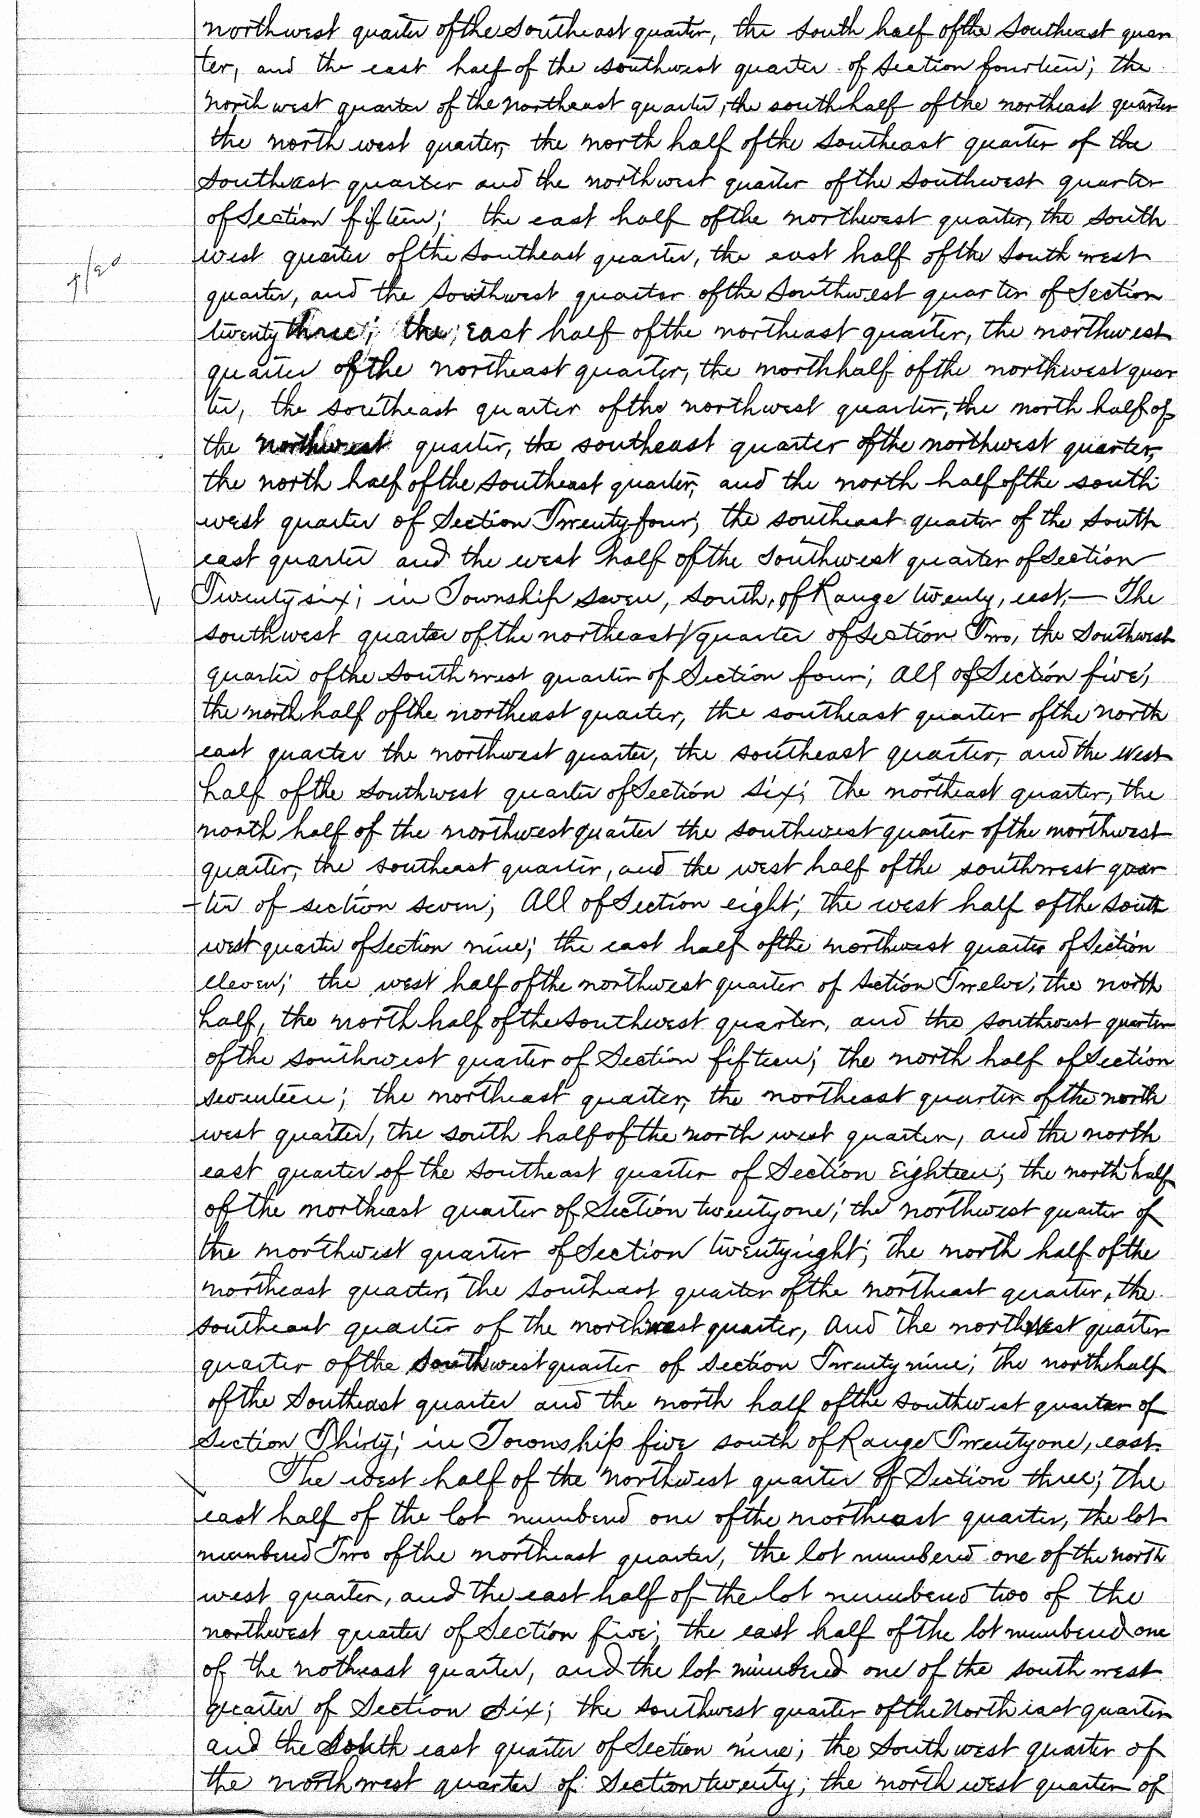 northwest quarter of the Southeast quarter, the South half of the Southeast quar
ter, and the east half of the southwest quarter of Section fourteen; the
north west quarter of the northeast quarter, the south half of the northeast quarter
the north west quarter, the north half of the Southeast quarter of the
Southeast quarter and the northwest quarter of the Southwest quarter
of Section fifteen; the east half of the northwest quarter, the South
west quarter of the Southeast quarter, the east half of the South west
quarter, and the Southwest quarter of the Southwest quarter of Section
twenty three; the east half of the northeast quarter, the northwest
quarter of the northeast quarter, the north half of the northwest quar
ter, the southeast quarter of the northwest quarter, the north half of
the northwest quarter, the southeast quarter of the northwest quarter,
the north half of the Southeast quarter, and the north half of the south
west quarter of Section Twenty four; the southeast quarter of the South
east quarter and the west half of the Southwest quarter of Section
Twenty six; in Township seven, South, of Range twenty, east,— The
southwest quarter of the northeast quarter of Section Two, the Southwest
quarter of the South west quarter of Section four; All of Section five;
the north half of the northeast quarter, the southeast quarter of the north
east quarter the northwest quarter, the southeast quarter, and the West
half of the Southwest quarter of Section six; The northeast quarter, the
north half of the northwest quarter the southwest quarter of the northwest
quarter, the southeast quarter, and the west half of the southwest quar
-ter of section seven; All of Section eight; the west half of the South
west quarter of Section nine; the east half of the northwest quarter of Section
eleven; the west half of the northwest quarter of Section Twelve; the north
half, the north half of the Southwest quarter, and the southwest quarter
of the southwest quarter of Section fifteen; the north half of Section
seventeen; the northeast quarter, the northeast quarter of the north
west quarter, the south half of the north west quarter, and the north
east quarter of the Southeast quarter of Section Eighteen; the north half
of the northeast quarter of Section twenty one; the northwest quarter of
the northwest quarter of Section twentyeight; the north half of the
northeast quarter, the southeast quarter of the northeast quarter, the
southeast quarter of the northwest quarter, and the northwest quarter
quarter of the Southwest quarter of Section Twenty nine; the north half
of the Southeast quarter and the north half of the southwest quarter of
Section Thirty; in Township five south of Range Twenty one, east.
The west half of the northwest quarter of Section three; the
east half of the lot numbered one of the northeast quarter, the lot
numbered Two of the northeast quarter, the lot numbered one of the north
west quarter, and the east half of the lot numbered two of the
northwest quarter of Section five; the east half of the lot numbered one
of the notheast quarter, and the lot numbered one of the south west
quarter of Section Six; the southwest quarter of the North east quarter
and the South east quarter of Section nine; the South west quarter of
the northwest quarter of Section twenty; the north west quarter of